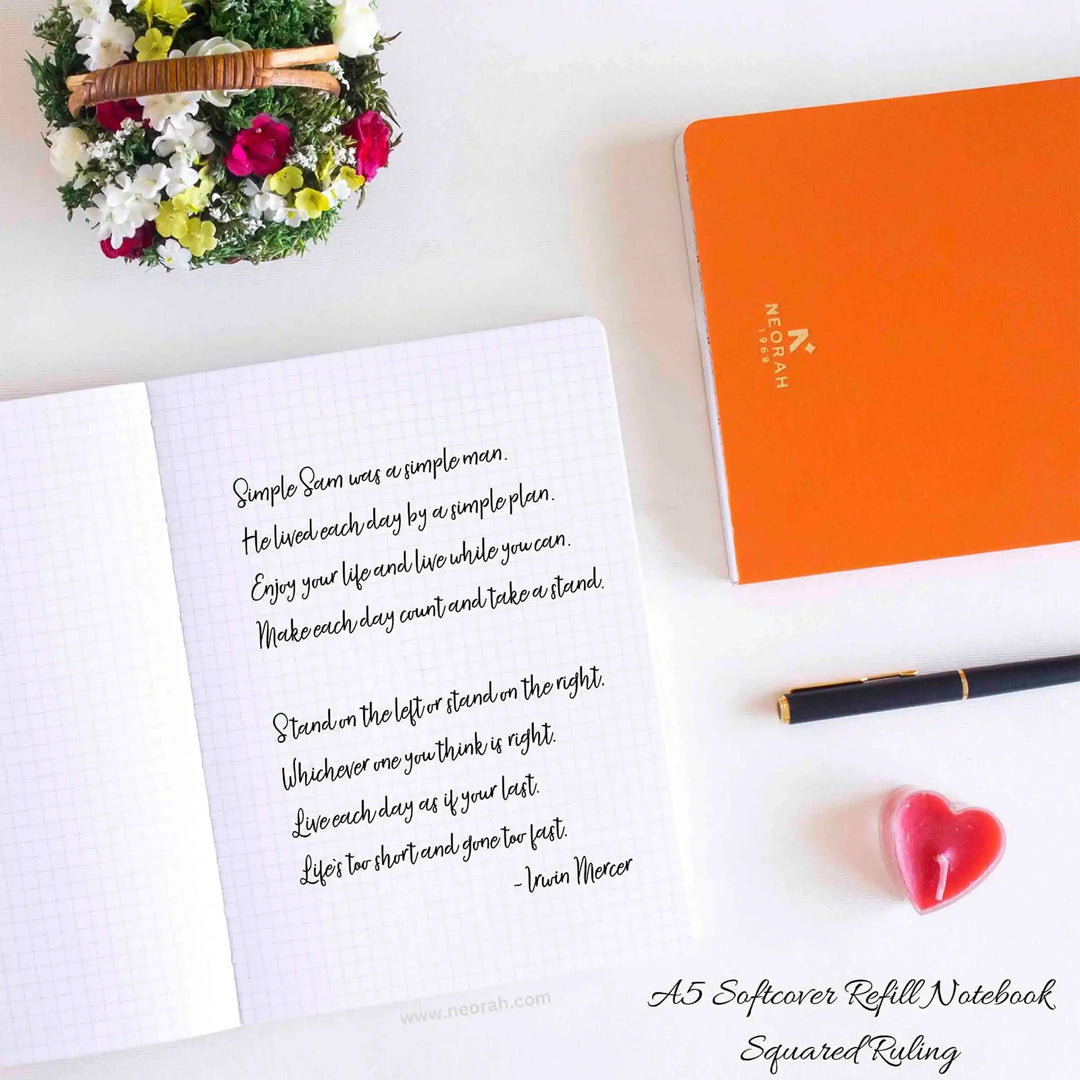 NEORAH
1969
Simple Sam was a simple man.
He lived each day by a simple plan.
Enjoy your life and live while you can.
Make each day count and take a stand.
Stand on the left or stand on the right.
Whichever one you think is right.
Live each day as if your last.
Life's too short and gone too fast.
- Irwin Mercer
www.neorah.com
A5 Softcover Refill Notebook
Squared Ruling